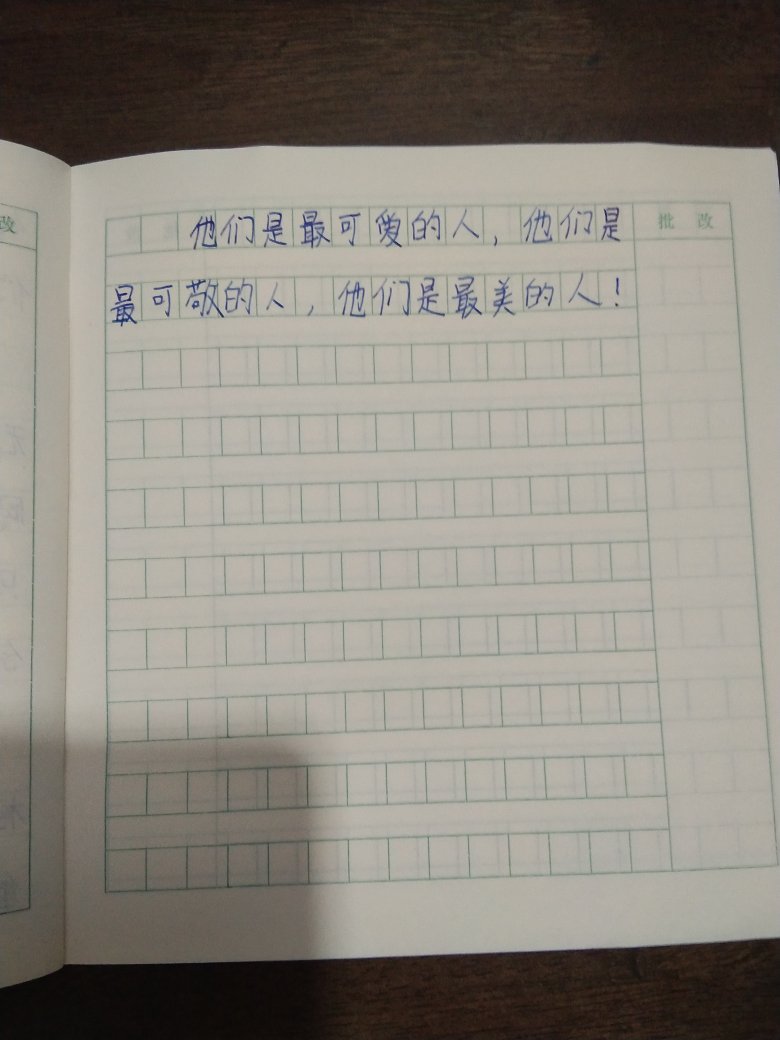 批 改
他们是最可爱的人，他们是
最可敬的人，他们是最美的人！
改